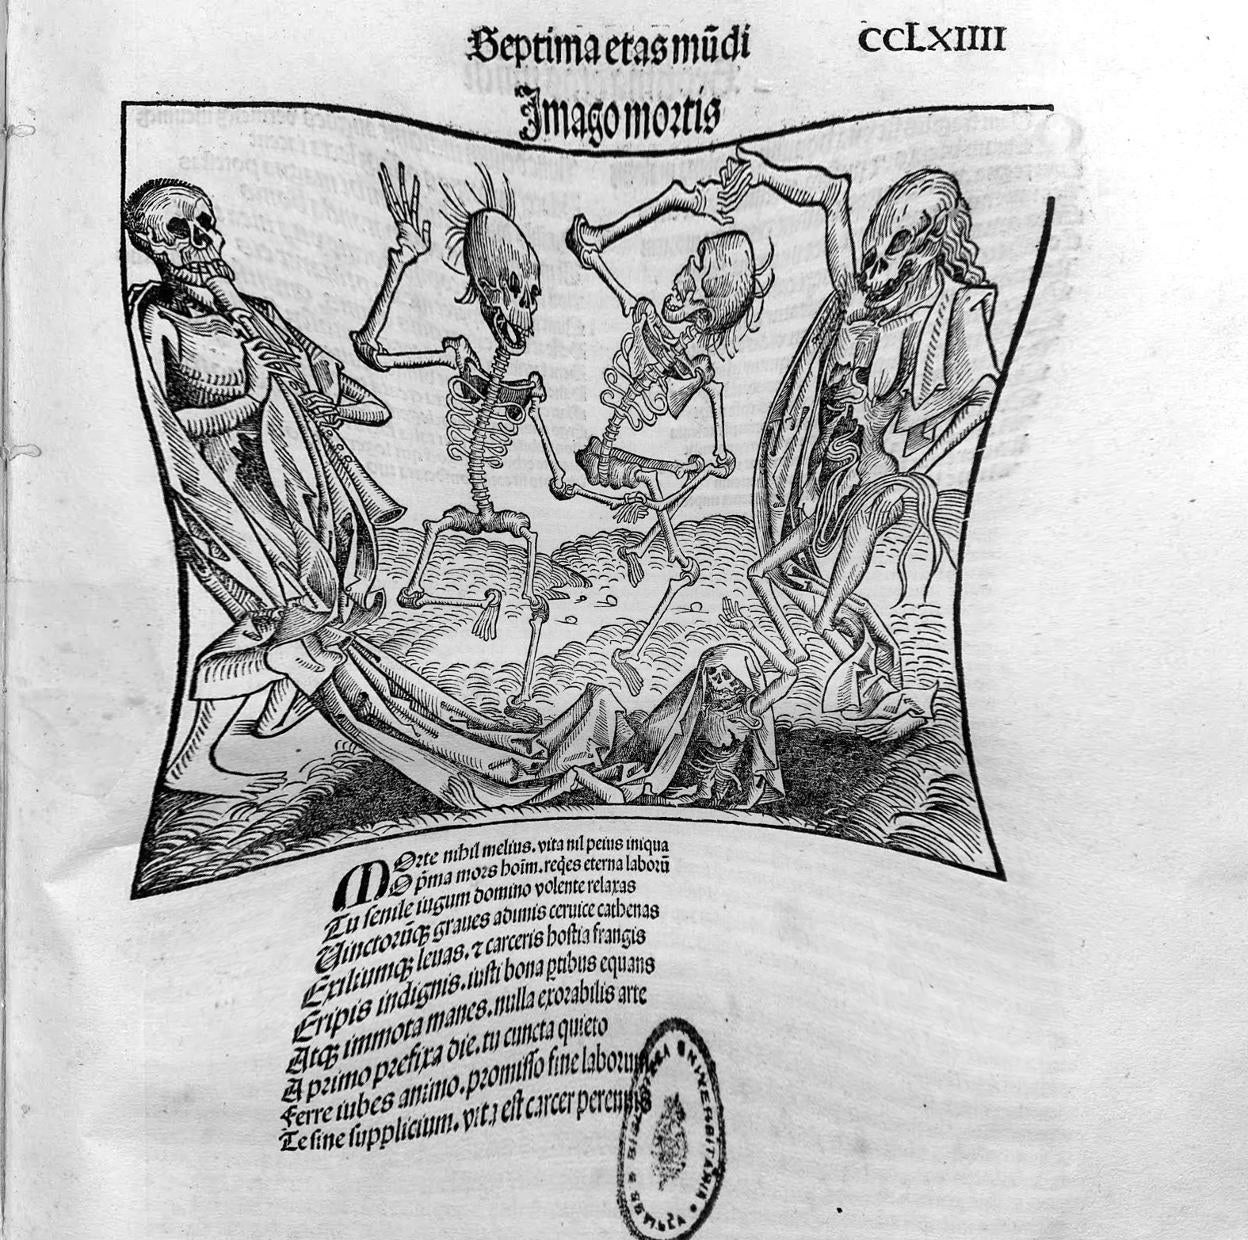 Septima etas mūdi
CCLXIIII
Imago mortis
MOrte nihil melius. vita nil peius iniqua
O pͥma mors hoīm. reqͥes eterna laborū
Tu senile iugum domino volente relaxas
Uinctorūqꝫ graues adimis ceruice cathenas
Exiliumqꝫ leuas. ⁊ carceris hostia frangis
Eripis indignis. iusti bona ꝑtibus equans
Atqꝫ immota manes. nulla exorabilis arte
A primo prefixa die. tu cuncta quieto
Ferre iubes animo. promisso fine laborum
Te sine supplicium. vita est carcer perennis
UNIVERSITARIA